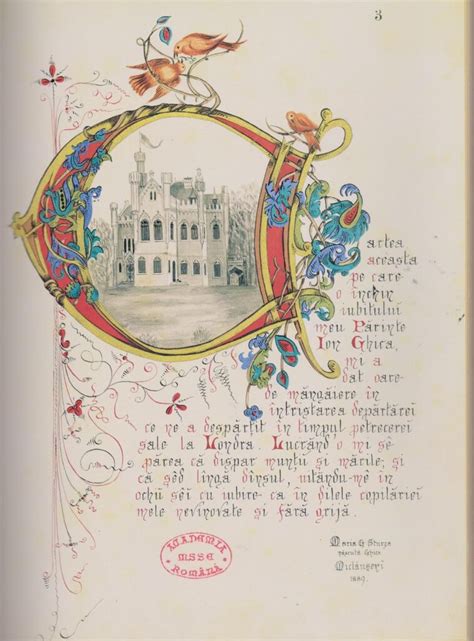 3
Cartea
aceasta
pe care
o închin
iubitului
meu Părinte
Ion Ghica,
mi a
dat oare-
de mângăiere in
intristarea depărtărei
ce ne a despărtit in timpul petrecerei
sale la Londra. Lucrând'o mi sĕ-
părea că dispar muntii si mările; si
că sĕd lingă dinsul, uitându-mĕ in
ochii sĕi cu iubire ca in dilele copilăriei
mele nevinovate si fără grijă.
Maria G Sturza
născută Ghica
Miclăuşeni
1889.
ACADEMIA
MSSE
ROMÂNĂ